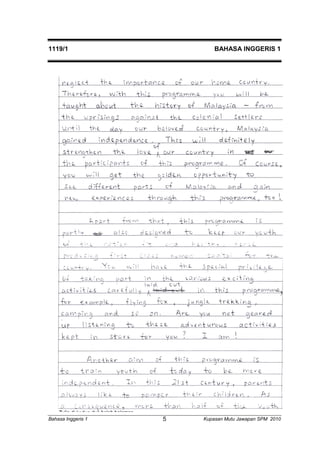 1119/1 BAHASA INGGERIS 1
neglect the importance of our home country.
Therefore, with this programme you will be
taught about the history of Malaysia - from
the uprisings against the colonial settlers
until the day our beloved country, Malaysia
gained independence. This will definitely
strengthen the love of our country in
the participants of this programme. Of course,
you will get the golden opportunity to
see different parts of Malaysia and gain
new experiences through this programme, too!
Apart from that, this programme is
also designed to keep our youth
country. You will have the special privilege
of taking part in the various exciting
activities carefully laid out in this programme,
for example, flying fox, jungle trekking,
camping and so on. Are you not geared
up listening to these adventurous activities
kept in store for you? I am!
Another aim of this programme is
to train youth of today to be more
independent. In this 21st century, parents
always like to pamper their children. As
a consequence, more than half of the youth
Bahasa Inggeris 1 5 Kupasan Mutu Jawapan SPM 2010